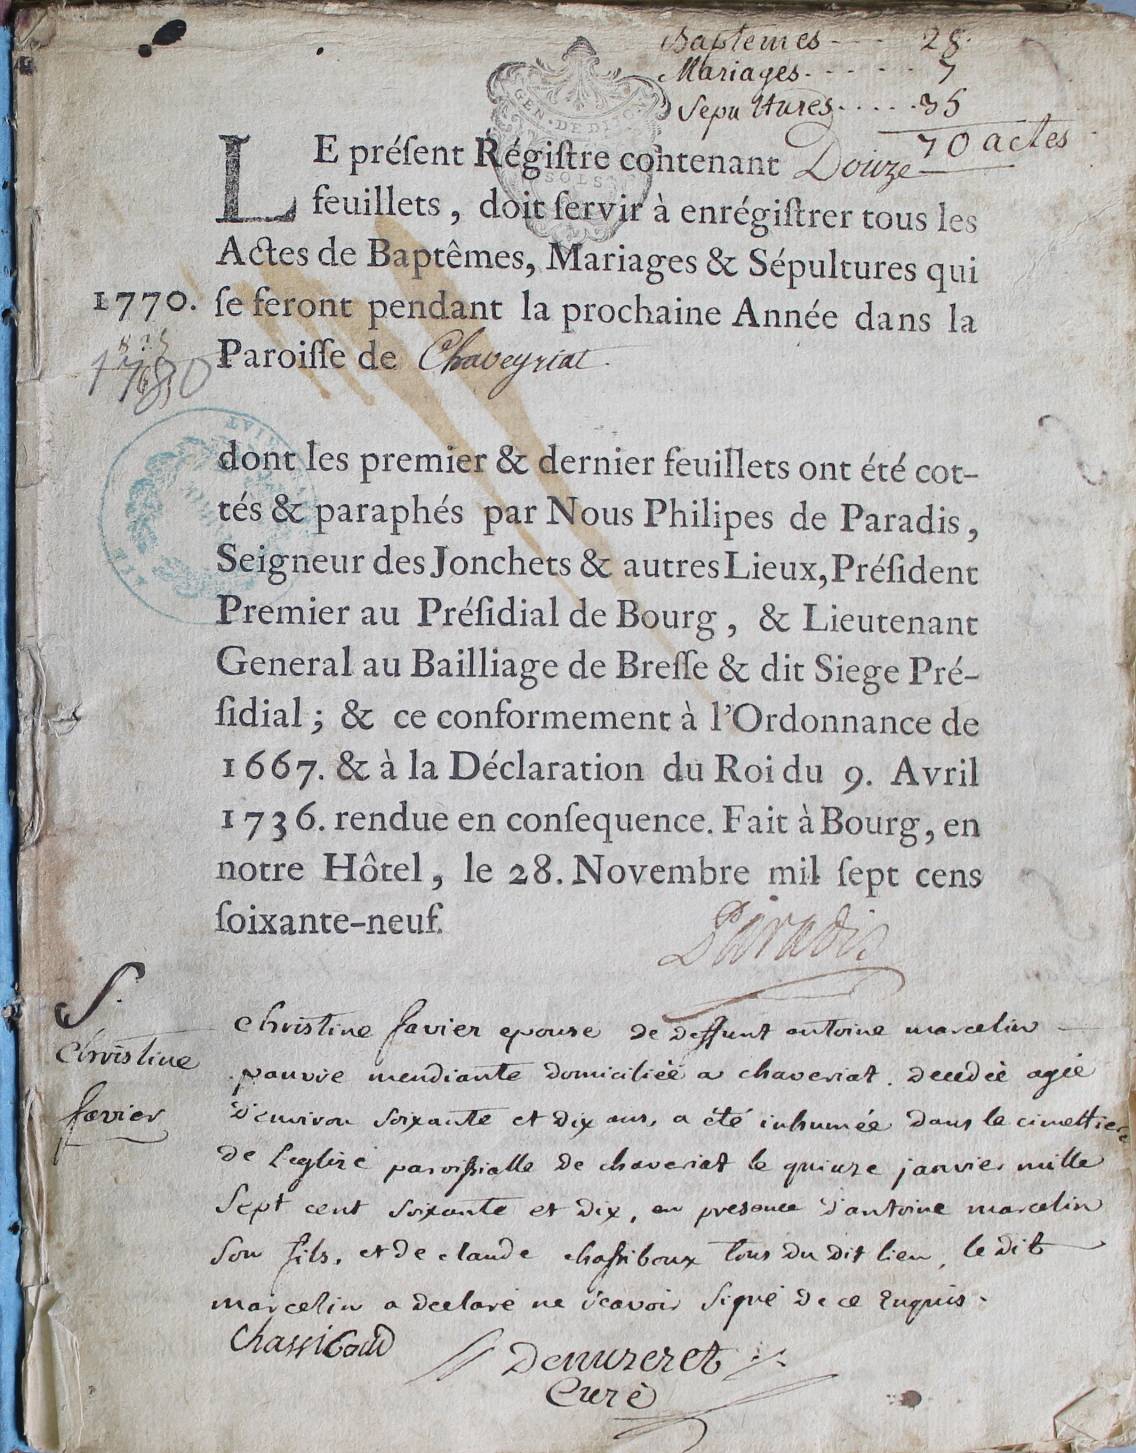 Baptemes - - - 28.
Mariages - - - - - 7
Sepultures - - - - - 35
70 actes
GEN · DE DIJON
SOLS
LE préſent Régiſtre contenant Douze
feuillets, doit ſervir à enrégiſtrer tous les
Actes de Baptêmes, Mariages & Sépultures qui
1770. ſe feront pendant la prochaine Année dans la
Paroiſſe de Chaveyriat.
1780
dont les premier & dernier feuillets ont été cot-
tés & paraphés par Nous Philipes de Paradis,
Seigneur des Jonchets & autres Lieux, Préſident
Premier au Préſidial de Bourg, & Lieutenant
General au Bailliage de Breſſe & dit Siege Pré-
ſidial; & ce conformement à l'Ordonnance de
1667. & à la Déclaration du Roi du 9. Avril
1736. rendue en conſequence. Fait à Bourg, en
notre Hôtel, le 28. Novembre mil ſept cens
ſoixante-neuf.
Paradis
S.
Christine
favier
christine favier epouse de deffunt antoine marcelin
pauvre mendiante domiciliéé a chaveriat. decedéé agéé
d'environ soixante et dix ans, a été inhuméé dans le cimettiere
de l'eglise paroissialle de chaveriat le quinze janvier mille
sept cent soixante et dix, en presence d'antoine marcelin
son fils, et de claude chassiboux tous du dit lieu, le dit
marcelin a declaré ne scavoir signé de ce enquis.
Chassiboud
Demureret
Curé